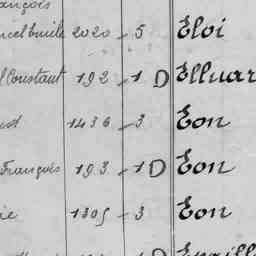 ançois
ncel Emile 2020 - 5 Eloi
l Constant 192 - 1 D Elluar
1436 - 3 Eon
François 193 - 1 D Eon
ie 1305 - 3 Eon
1 D